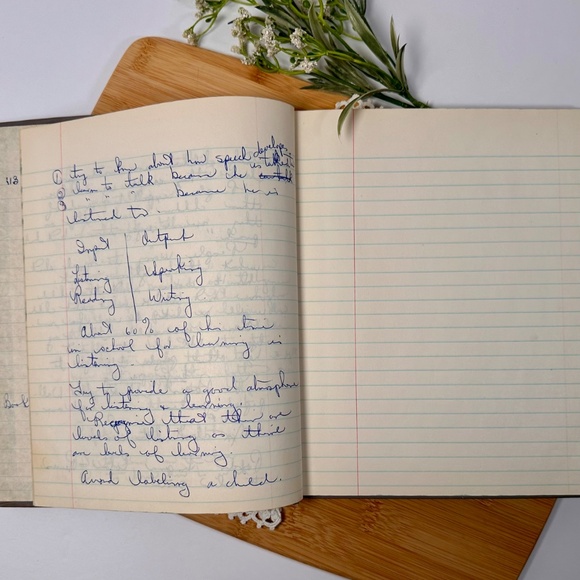 ① try to know about how speech develops
② learn to talk because he is talked to
③ " " " because he is
listened to.
Input | Output
Listening | Speaking
Reading | Writing
About 60% of his time
in school for learning is
listening.
Try to provide a good atmosphere
for listening & learning.
Book
Recognize that there are
levels of listening as there
are levels of learning.
Avoid labeling a child.